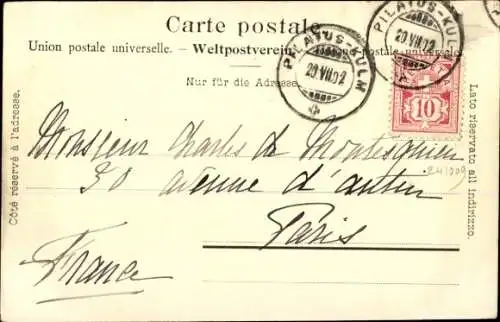 Carte postale.
Union postale universelle. – Weltpostverein. – Unione postale universale.
Nur für die Adresse.
PILATUS-KULM
20.VII.02
PILATUS-KULM
20.VII.02
10
Côté réservé à l'adresse.
Lato riservato all indirizzo.
Monsieur Charles de Montesquieu
30 avenue d'antin
Paris
France